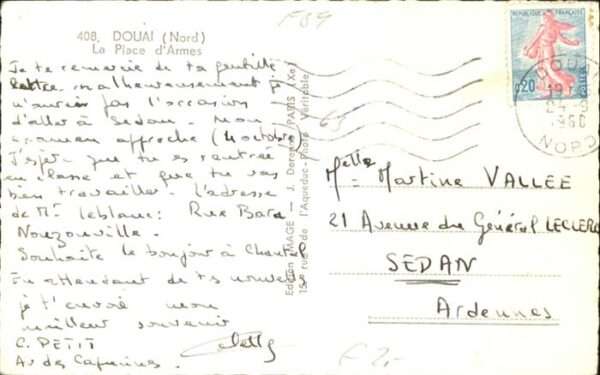 F89
408, DOUAI (Nord)
La Place d'Armes
Je te remercie de ta gentille
lettre malheureusement je
n'aurai pas l'occasion
d'aller à Sedan. Mon
examen approche (4 octobre)
J'espère que tu es rentrée
en classe et que tu vas
bien travailler. L'adresse
de Mr Leblanc: Rue Bara
Nouzonville.
Souhaite le bonjour à Chantal
En attendant de tes nouvelles
je t'envoie mon
meilleur souvenir
C. PETIT
Av des Capucines.
Edition IMAGE — J. PARIS (Xe)
15, rue de l'Aqueduc - Photo Véritable
REPUBLIQUE FRANÇAISE
0,20
POSTES
DOUAI
1960
NORD
Melle Martine VALLÉE
21 Avenue du Général LECLERC
SEDAN
Ardennes